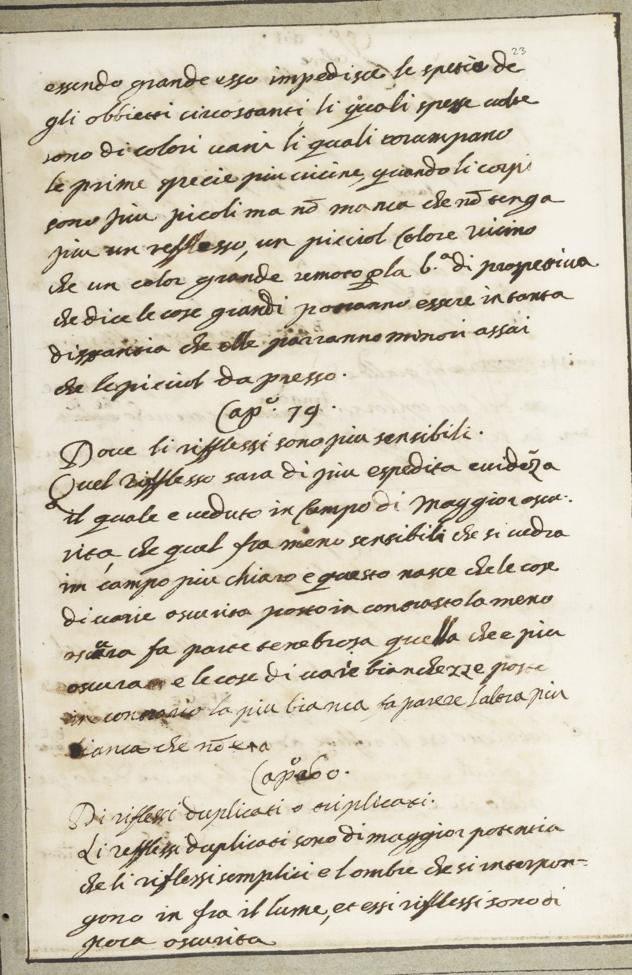 23
essendo grande esso impedisce le spetie de
gli obbietti circostanti li quali spesse volte
sono di colori varii li quali corumpano
le prime specie piu vicine, quando li corpi
sono piu picoli ma nō manca che nō tenga
piu un reflesso, un picciol colore vicino
che un color grande remoto p la b.ª di prospetiva
che dice le cose grandi potranno essere in tanta
distantia che elle parranno minori assai
che le picciol da presso.
Capº. 79.
Dove li rifflessi sono piu sensibili.
Quel rifflesso sara di piu espedita evidēza
il quale e veduto in Campo di Maggior oscu:
rità che quel fra meno sensibili che si vedra
im campo piu chiaro e questo nasce che le cose
di varie oscurita posto in contrasto la meno
oscura fa parte tenebrosa quella che e piu
oscura e le cose di varie bianchezze poste
in contrario la piu bianca fa parere laltra piu
bianca che nō era
Capº 80.
Di riflessi duplicati o triplicati.
Li refflessi duplicati sono di maggior potentia
che li riflessi semplici e lombre che si interpon=
gono in fra il lume, et essi riflessi sono di
poca oscurita